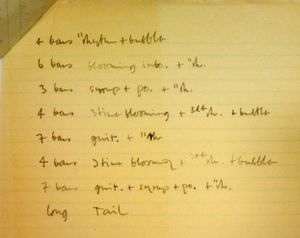 4 bars "rhythm + bubble
6 bars blooming into. + "rh.
3 bars syrup + po. + "rh.
4 bars Stine blooming + rh. + bubble
7 bars guit. + "rh
4 bars Stine blooming + + bubble
7 bars guit. + syrup + po. + "rh.
long Tail